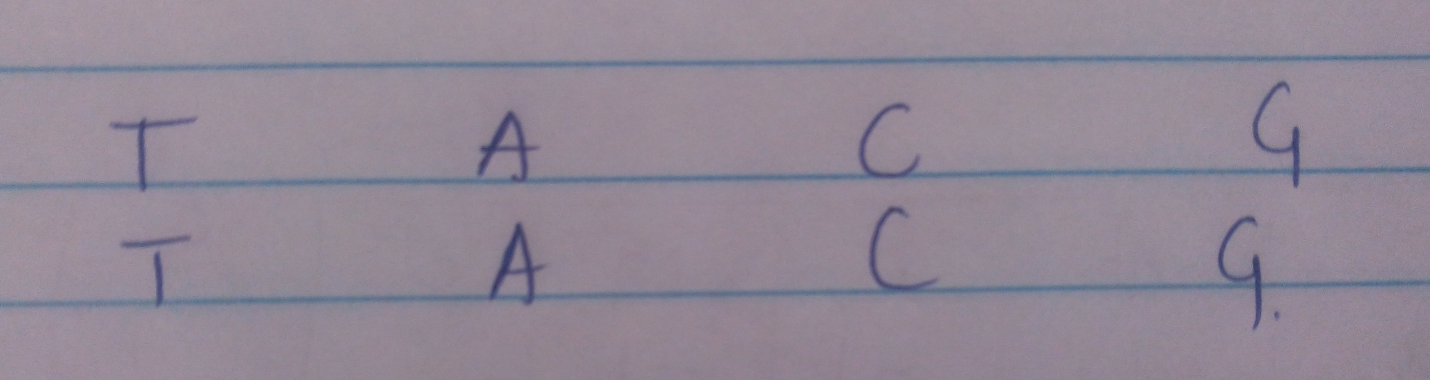 T A C G
T A C G.